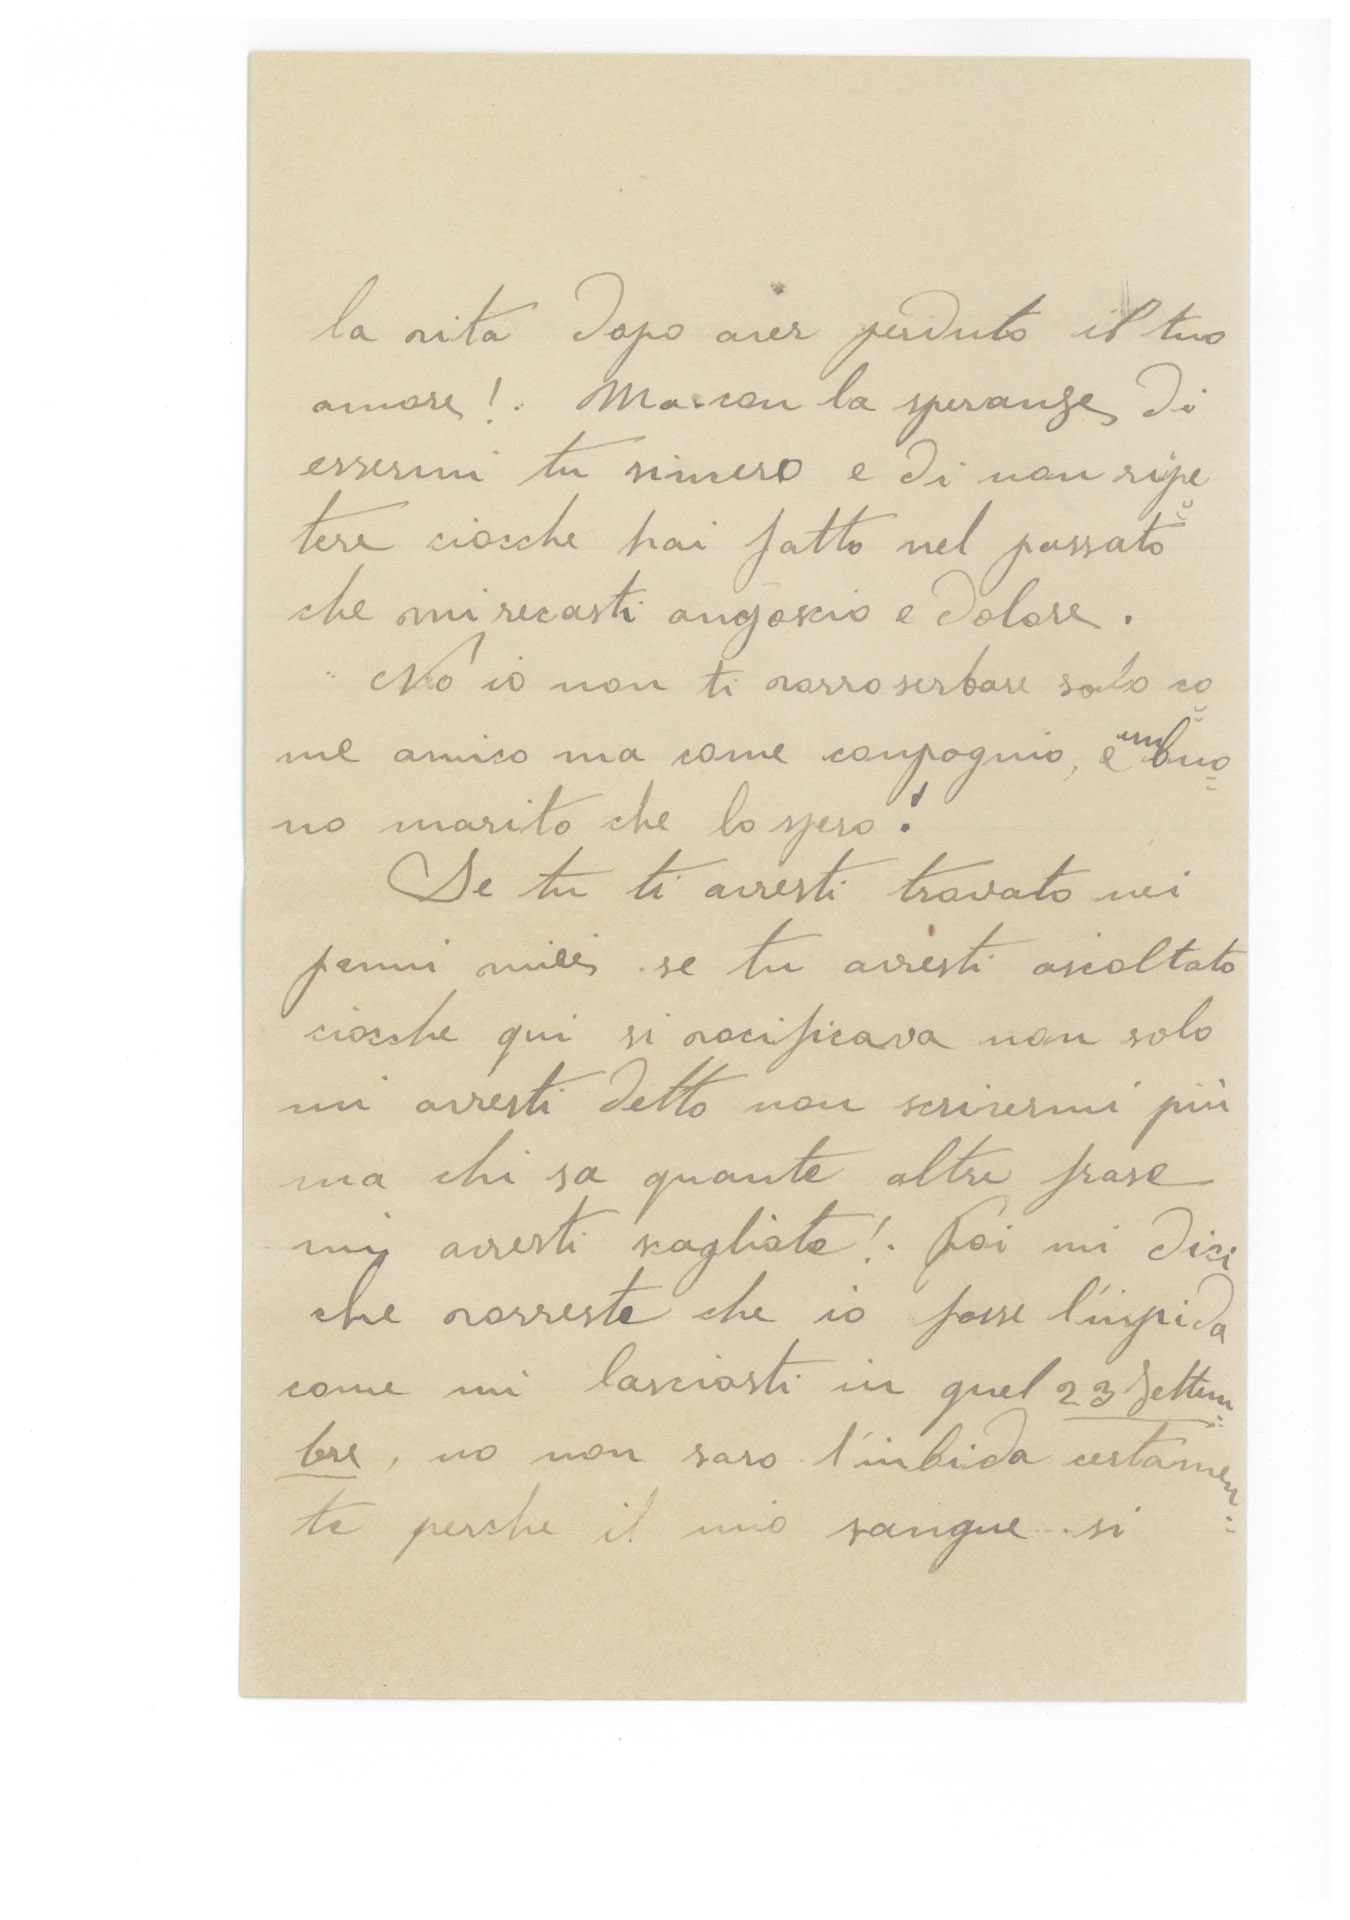 la vita dopo aver perduto il tuo
amore! Ma con la speranza di
essermi tu sincero e di non ripe
tere ciocche hai fatto nel passato
che mi recasti angoscio e dolore.
No io non ti vorro serbare solo co
me amico ma come conpagnio, e un buo
no marito che lo spero!
Se tu ti avresti trovato nei
panni miei se tu avresti ascoltato
ciocche qui si vocificava non solo
mi avresti detto non scrivermi più
ma chi sa quante altre frase
mi avresti scagliate! Poi mi dici
che vorreste che io fosse l'inpida
come mi lasciasti in quel 23 Settem
bre, no non saro l'inbida certamen
te perche il mio sangue si